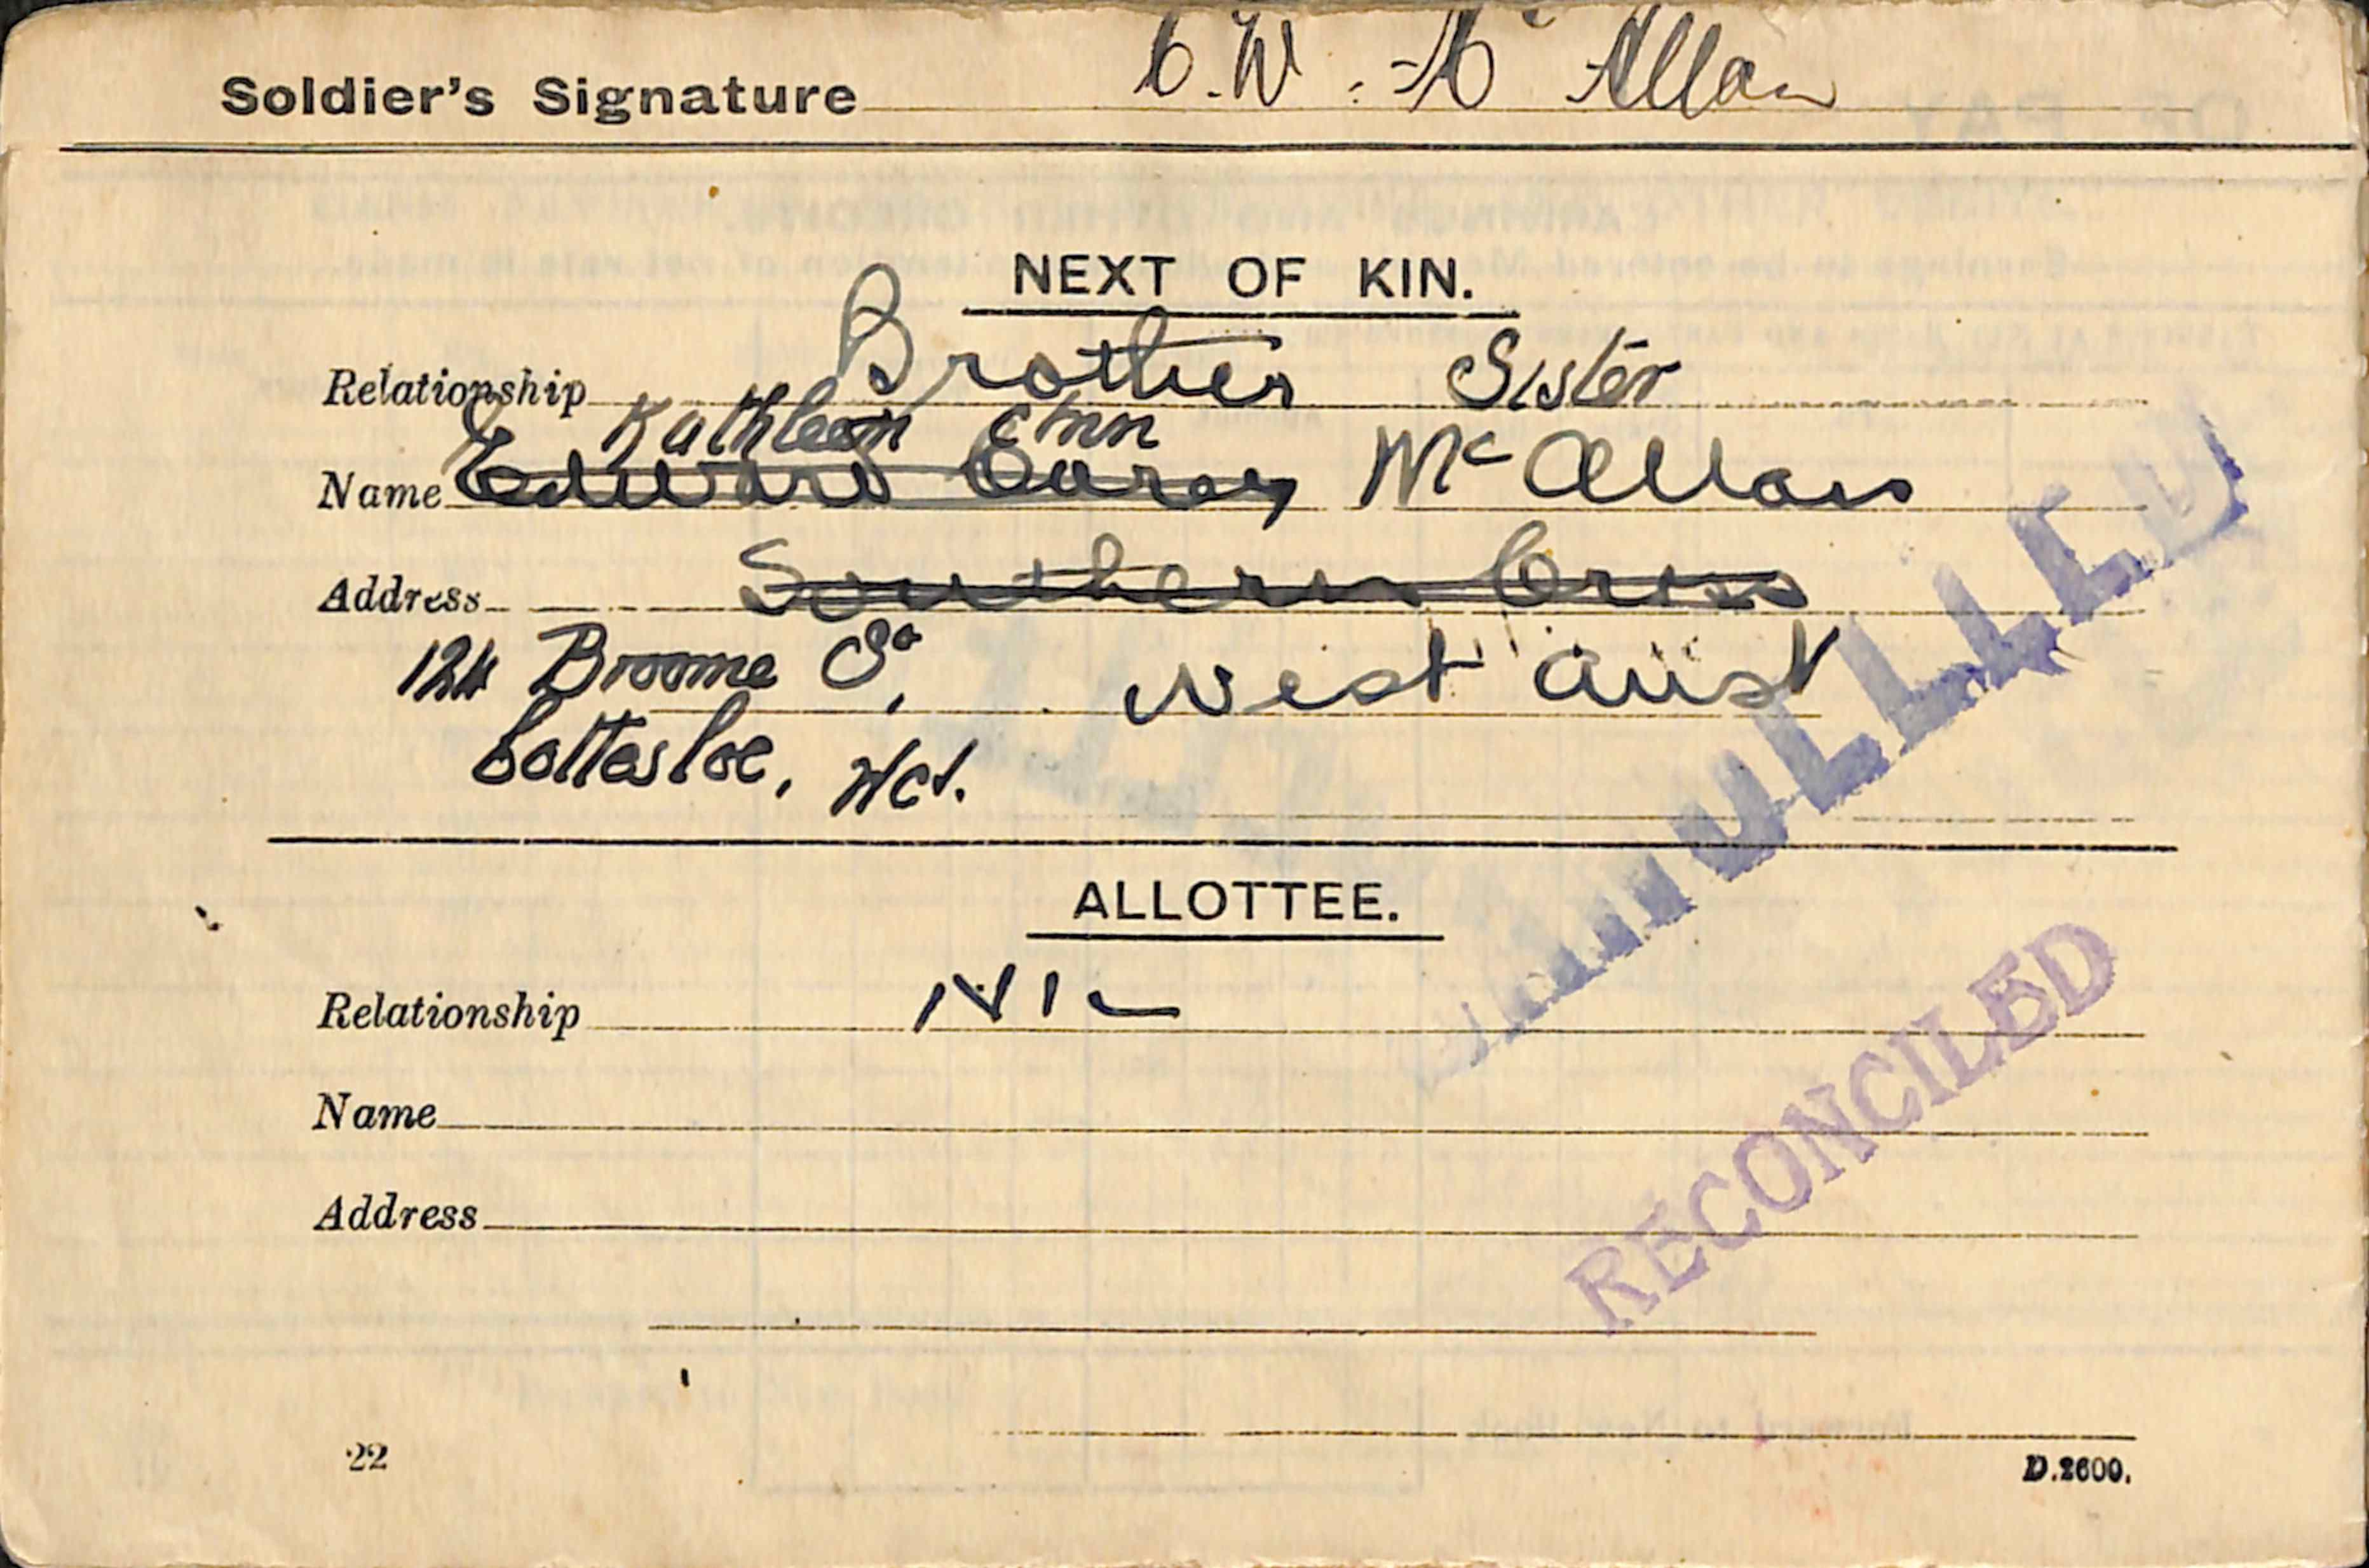 Soldier's Signature C.W. Mc Allan
NEXT OF KIN.
Relationship Brother Sister
Kathleen Ann
Name Edward Carey Mc Allan
Address Southern Cross
124 Broome St, West Aust
Cottesloe, W.A.
ALLOTTEE.
Relationship NIL
Name
Address
CANCELLED
RECONCILED
22
D.2600.